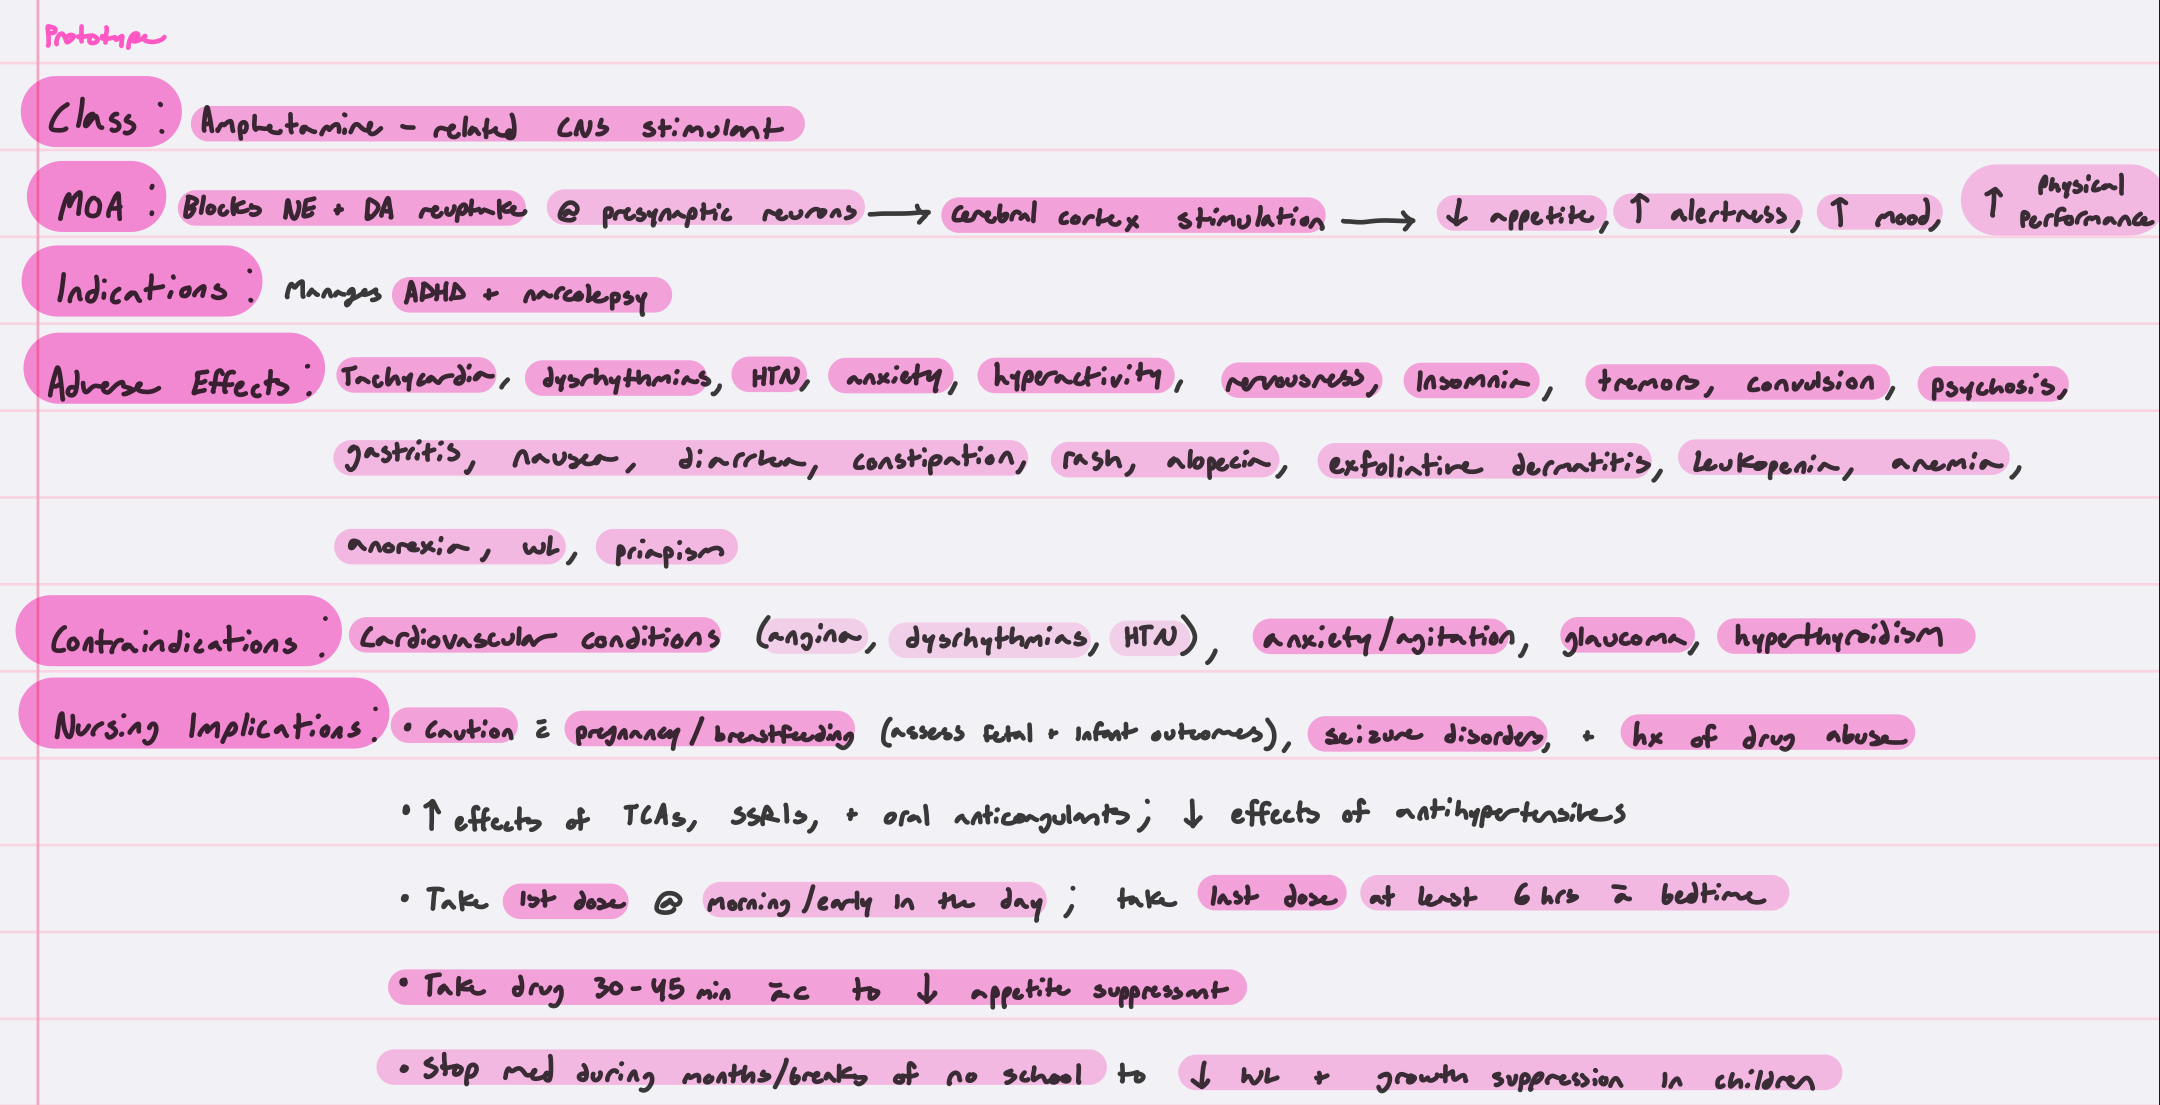 Prototype
Class: Amphetamine - related CNS stimulant
MOA: Blocks NE + DA reuptake @ presynaptic neurons → Cerebral cortex stimulation → ↓ appetite, ↑ alertness, ↑ mood, ↑ Physical performance
Indications: Manages ADHD + narcolepsy
Adverse Effects: Tachycardia, dysrhythmias, HTN, anxiety, hyperactivity, nervousness, Insomnia, tremors, convulsion, psychosis,
gastritis, nausea, diarrhea, constipation, rash, alopecia, exfoliative dermatitis, leukopenia, anemia,
anorexia, WL, priapism
Contraindications: Cardiovascular conditions (angina, dysrhythmias, HTN), anxiety/agitation, glaucoma, hyperthyroidism
Nursing Implications: • Caution c̄ pregnancy/breastfeeding (assess fetal + infant outcomes), seizure disorders, + hx of drug abuse
• ↑ effects of TCAs, SSRIs, + oral anticoagulants; ↓ effects of antihypertensives
• Take 1st dose @ morning/early in the day; take last dose at least 6 hrs ā bedtime
• Take drug 30-45 min āc to ↓ appetite suppressant
• Stop med during months/breaks of no school to ↓ WL + growth suppression in children